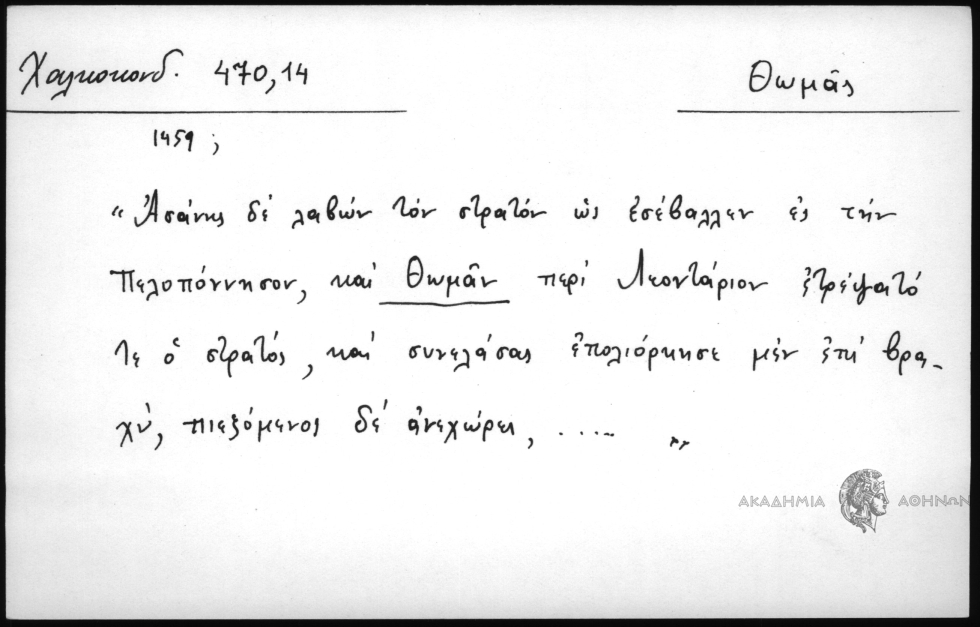 Χαλκοκονδ. 470,14
Θωμᾶς
1459 ;
"Ἀσάνης δέ λαβών τόν στρατόν ὡς ἐσέβαλλεν ἐς τήν
Πελοπόννησον, καί Θωμᾶν περί Λεοντάριον ἐτρέψατό
τε ὁ στρατός, καί συνελάσας ἐπολιόρκησε μέν ἐπί βρα-
χύ, πιεζόμενος δέ ἀνεχώρει, ....."
ΑΚΑΔΗΜΙΑ ΑΘΗΝΩΝ